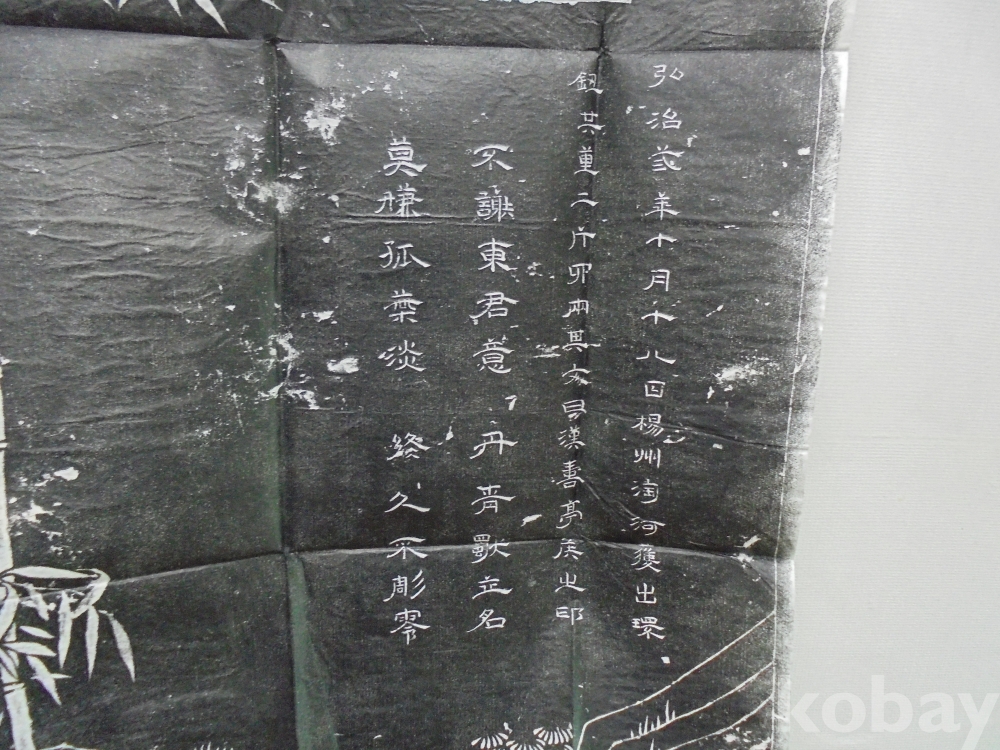 弘治弍年十月十八日楊州淘河獲出環
鈕其重二斤四兩其文曰漢壽亭侯之印
不謝東君意 丹青獨立名
莫嫌孤葉淡 終久不彫零
kobay